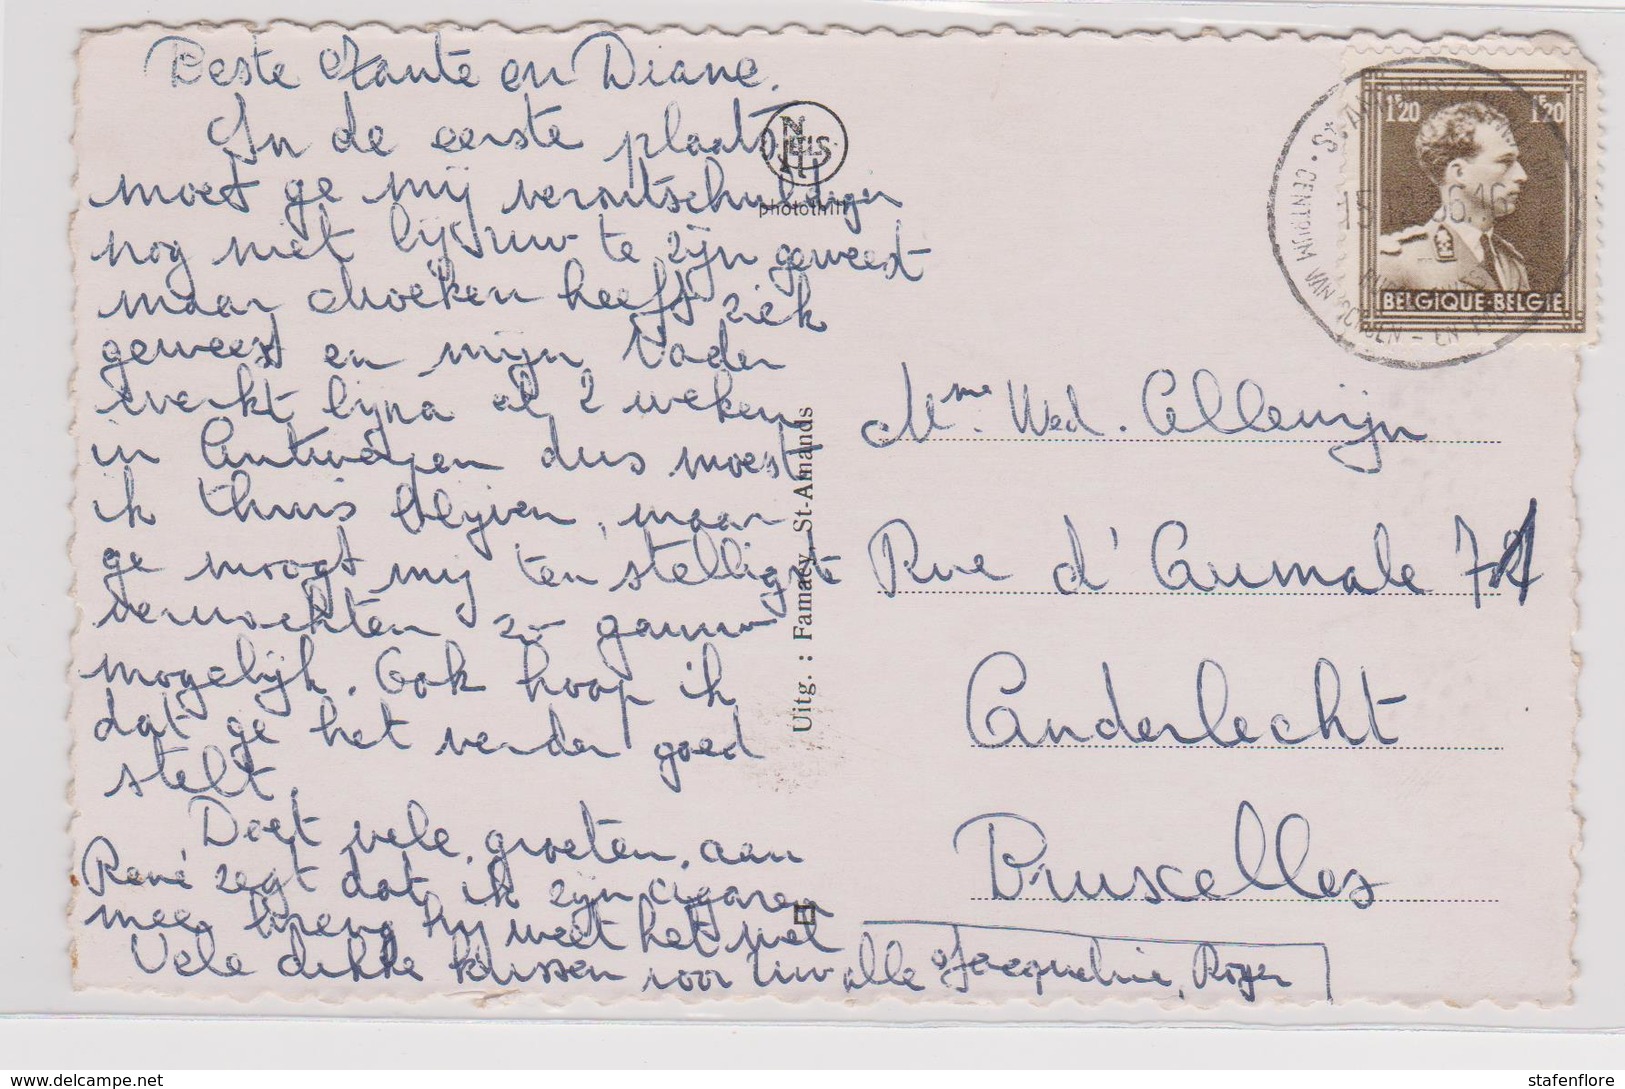 Beste Tante en Diane,
In de eerste plaats
moet ge mij verontschuldigen
nog niet bij uw te zijn geweest
maar Moeken heeft ziek
geweest en mijn Vader
werkt bijna al 2 weken
in Antwerpen dus moest
ik thuis blijven, maar
ge moogt mij ten stelligste
verwachten zo gauw
mogelijk. Ook hoop ik
dat ge het verder goed
stelt.
Doet vele groeten aan
René zegt dat ik zijn cigaren
mee breng hij weet het wel
Vele dikke kussen voor uw alle Jacqueline, Roger
NELS
photothill
Uitg. : Famaey, St-Amands
1F20 1F20
BELGIQUE-BELGIE
CENTRUM VAN
Mme Wed. Allewijn
Rue d'Aumale 71
Anderlecht
Bruxelles
stafenflore